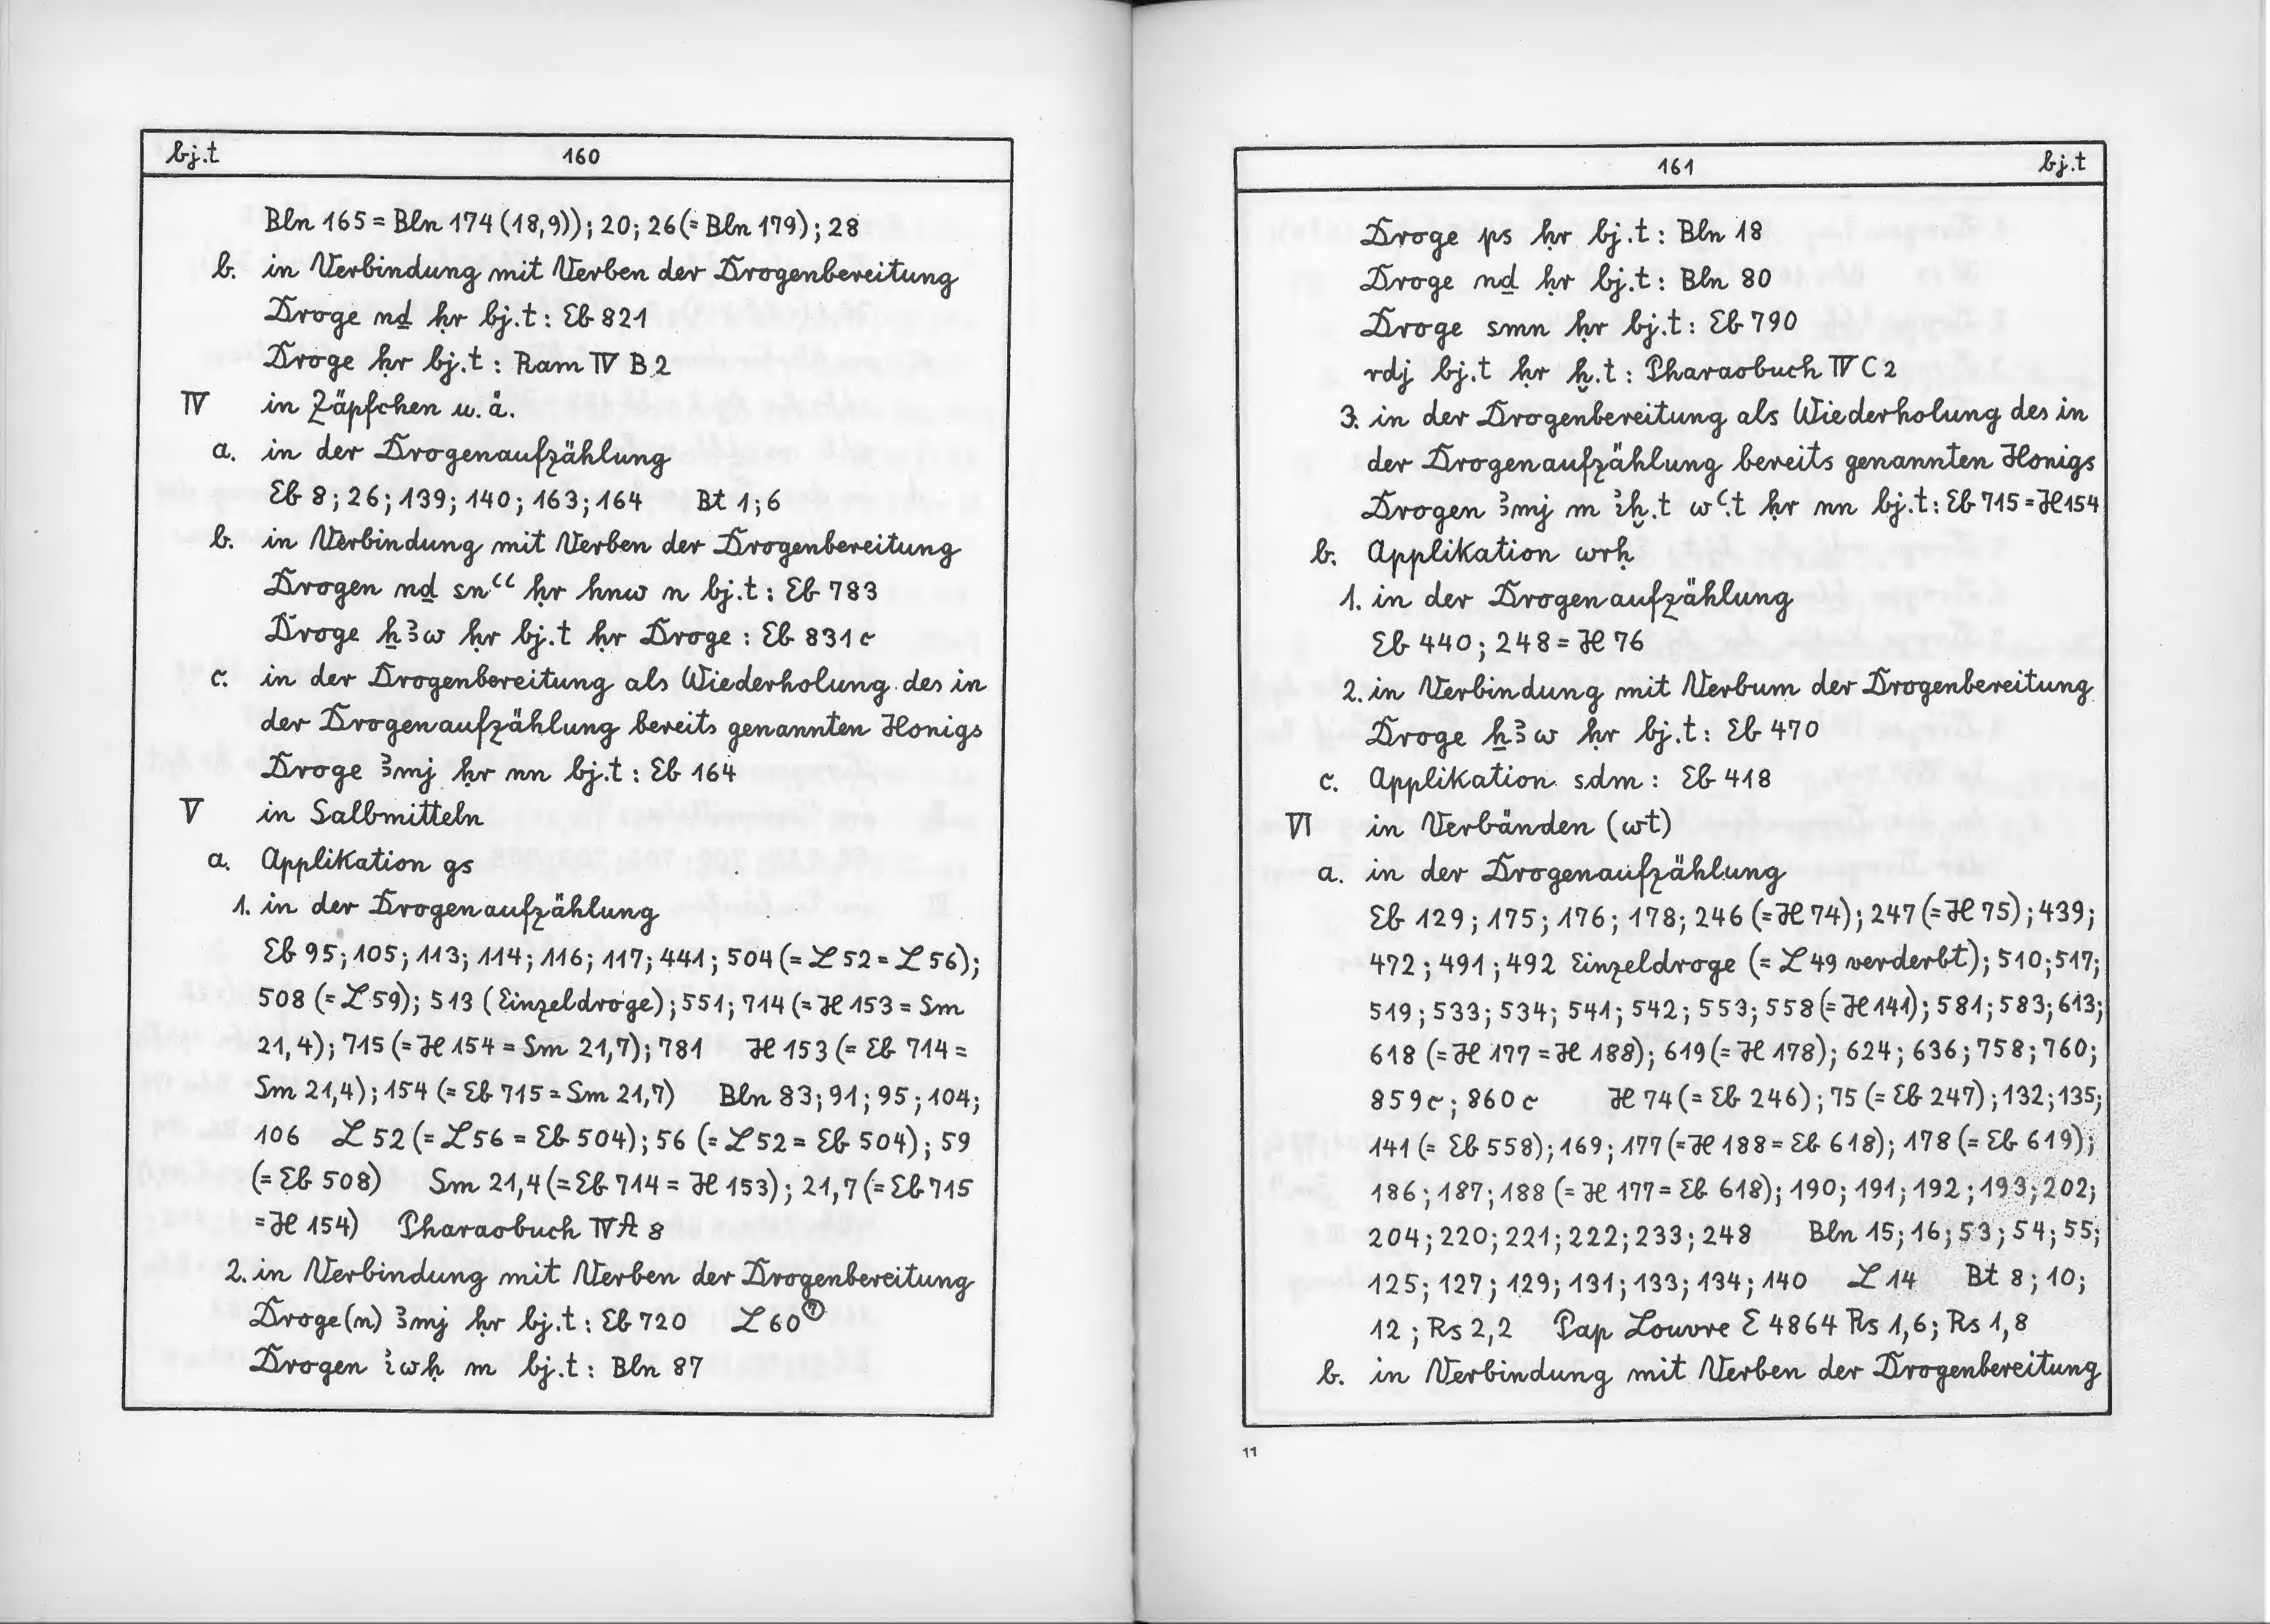 bj.t 160
Bln 165 = Bln 174 (18,9)); 20; 26 (= Bln 179); 28
b. in Verbindung mit Verben der Drogenbereitung
Droge nḏ ḥr bj.t : Eb 821
Droge ḥr bj.t : Ram IV B 2
IV in Zäpfchen u. ä.
a. in der Drogenaufzählung
Eb 8; 26; 139; 140; 163; 164 Bt 1; 6
b. in Verbindung mit Verben der Drogenbereitung
Drogen nḏ snꜥꜥ ḥr hnw n bj.t : Eb 783
Droge ẖꜣw ḥr bj.t ḥr Droge : Eb 831 c
c. in der Drogenbereitung als Wiederholung des in
der Drogenaufzählung bereits genannten Honigs
Droge ꜣmj ḥr nn bj.t : Eb 164
V in Salbmitteln
a. Applikation gs
1. in der Drogenaufzählung
Eb 95; 105; 113; 114; 116; 117; 441; 504 (= L 52 = L 56);
508 (= L 59); 513 (Einzeldroge); 551; 714 (= H 153 = Sm
21,4); 715 (= H 154 = Sm 21,7); 781 H 153 (= Eb 714 =
Sm 21,4); 154 (= Eb 715 = Sm 21,7) Bln 83; 91; 95; 104;
106 L 52 (= L 56 = Eb 504); 56 (= L 52 = Eb 504); 59
(= Eb 508) Sm 21,4 (= Eb 714 = H 153); 21,7 (= Eb 715
= H 154) Pharaobuch IV A 8
2. in Verbindung mit Verben der Drogenbereitung
Droge(n) ꜣmj ḥr bj.t : Eb 720 L 60 ⑦
Drogen ꞽwḥ m bj.t : Bln 87
161 bj.t
Droge ps ḥr bj.t : Bln 18
Droge nḏ ḥr bj.t : Bln 80
Droge smn ḥr bj.t : Eb 790
rdj bj.t ḥr ḫ.t : Pharaobuch IV C 2
3. in der Drogenbereitung als Wiederholung des in
der Drogenaufzählung bereits genannten Honigs
Drogen ꜣmj m ꞽḫ.t wꜥ.t ḥr nn bj.t : Eb 715 = H 154
b. Applikation wrḥ
1. in der Drogenaufzählung
Eb 440; 248 = H 76
2. in Verbindung mit Verbum der Drogenbereitung
Droge ẖꜣw ḥr bj.t : Eb 470
c. Applikation sdm : Eb 418
VI in Verbänden (wt)
a. in der Drogenaufzählung
Eb 129; 175; 176; 178; 246 (= H 74); 247 (= H 75); 439;
472; 491; 492 Einzeldroge (= L 49 verderbt); 510; 517;
519; 533; 534; 541; 542; 553; 558 (= H 141); 581; 583; 613;
618 (= H 177 = H 188); 619 (= H 178); 624; 636; 758; 760;
859 c; 860 c H 74 (= Eb 246); 75 (= Eb 247); 132; 135;
141 (= Eb 558); 169; 177 (= H 188 = Eb 618); 178 (= Eb 619);
186; 187; 188 (= H 177 = Eb 618); 190; 191; 192; 193; 202;
204; 220; 221; 222; 233; 248 Bln 15; 16; 53; 54; 55;
125; 127; 129; 131; 133; 134; 140 L 14 Bt 8; 10;
12; Rs 2,2 Pap Louvre E 4864 Rs 1,6; Rs 1,8
b. in Verbindung mit Verben der Drogenbereitung
11